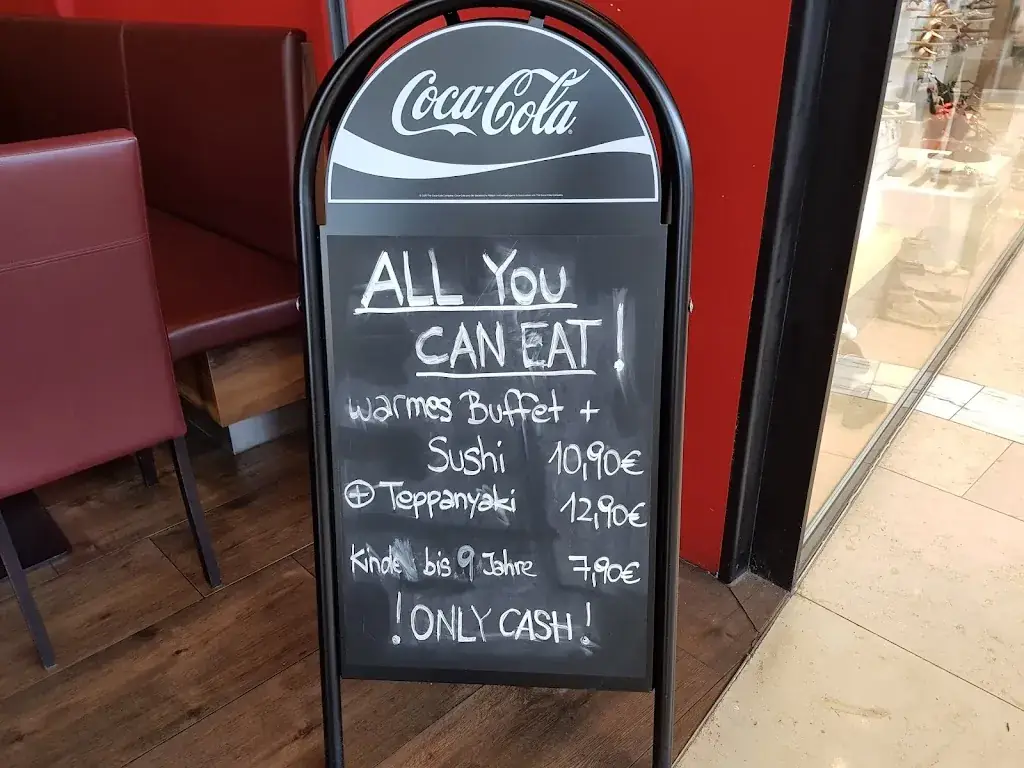 Coca-Cola
ALL YOU
CAN EAT!
warmes Buffet +
Sushi 10,90€
⊕ Teppanyaki 12,90€
Kinde bis 9 Jahre 7,90€
! ONLY CASH !